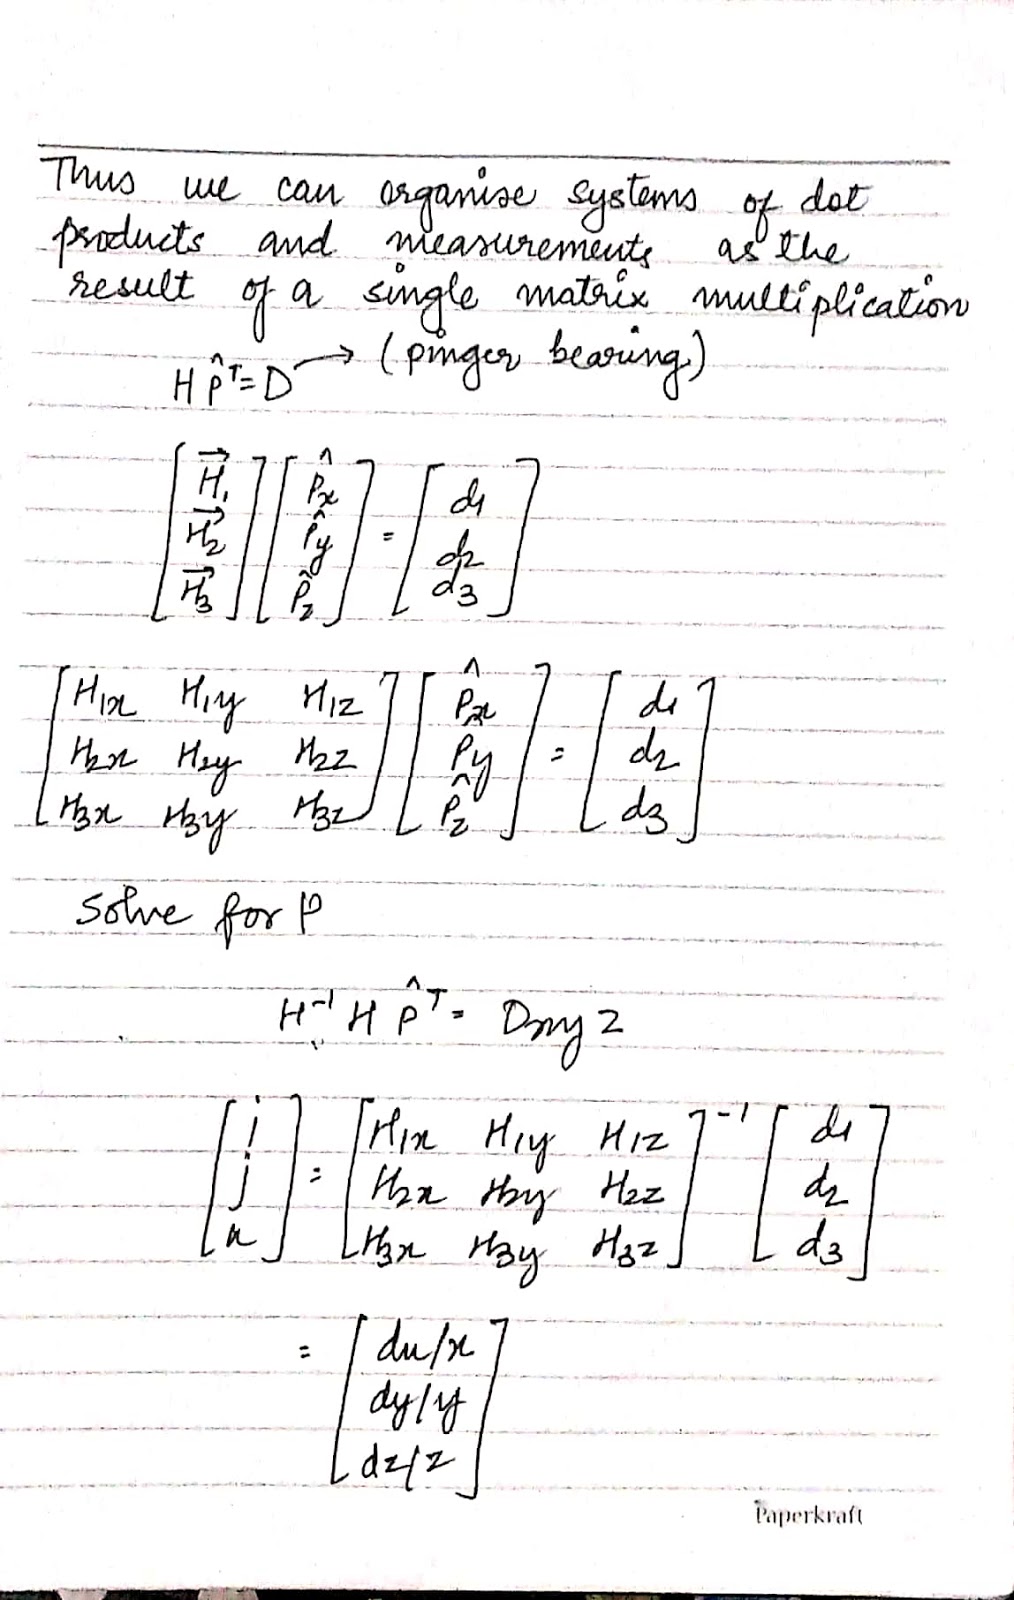 Thus we can organise systems of dot
products and measurements as the
result of a single matrix multiplication
H p̂ᵀ = D → (pinger bearing)
[H⃗₁ H⃗₂ H⃗₃] [p̂x p̂y p̂z] = [d1 d2 d3]
[H1x H1y H1z] [p̂x] = [d1]
[H2x H2y H2z] [p̂y] = [d2]
[H3x H3y H3z] [p̂z] = [d3]
Solve for p
H⁻¹ H p̂ᵀ = Dxyz
[i] = [H1x H1y H1z]⁻¹ [d1]
[j] = [H2x H2y H2z] [d2]
[k] = [H3x H3y H3z] [d3]
= [dx/x]
[dy/y]
[dz/z]
Paperkraft